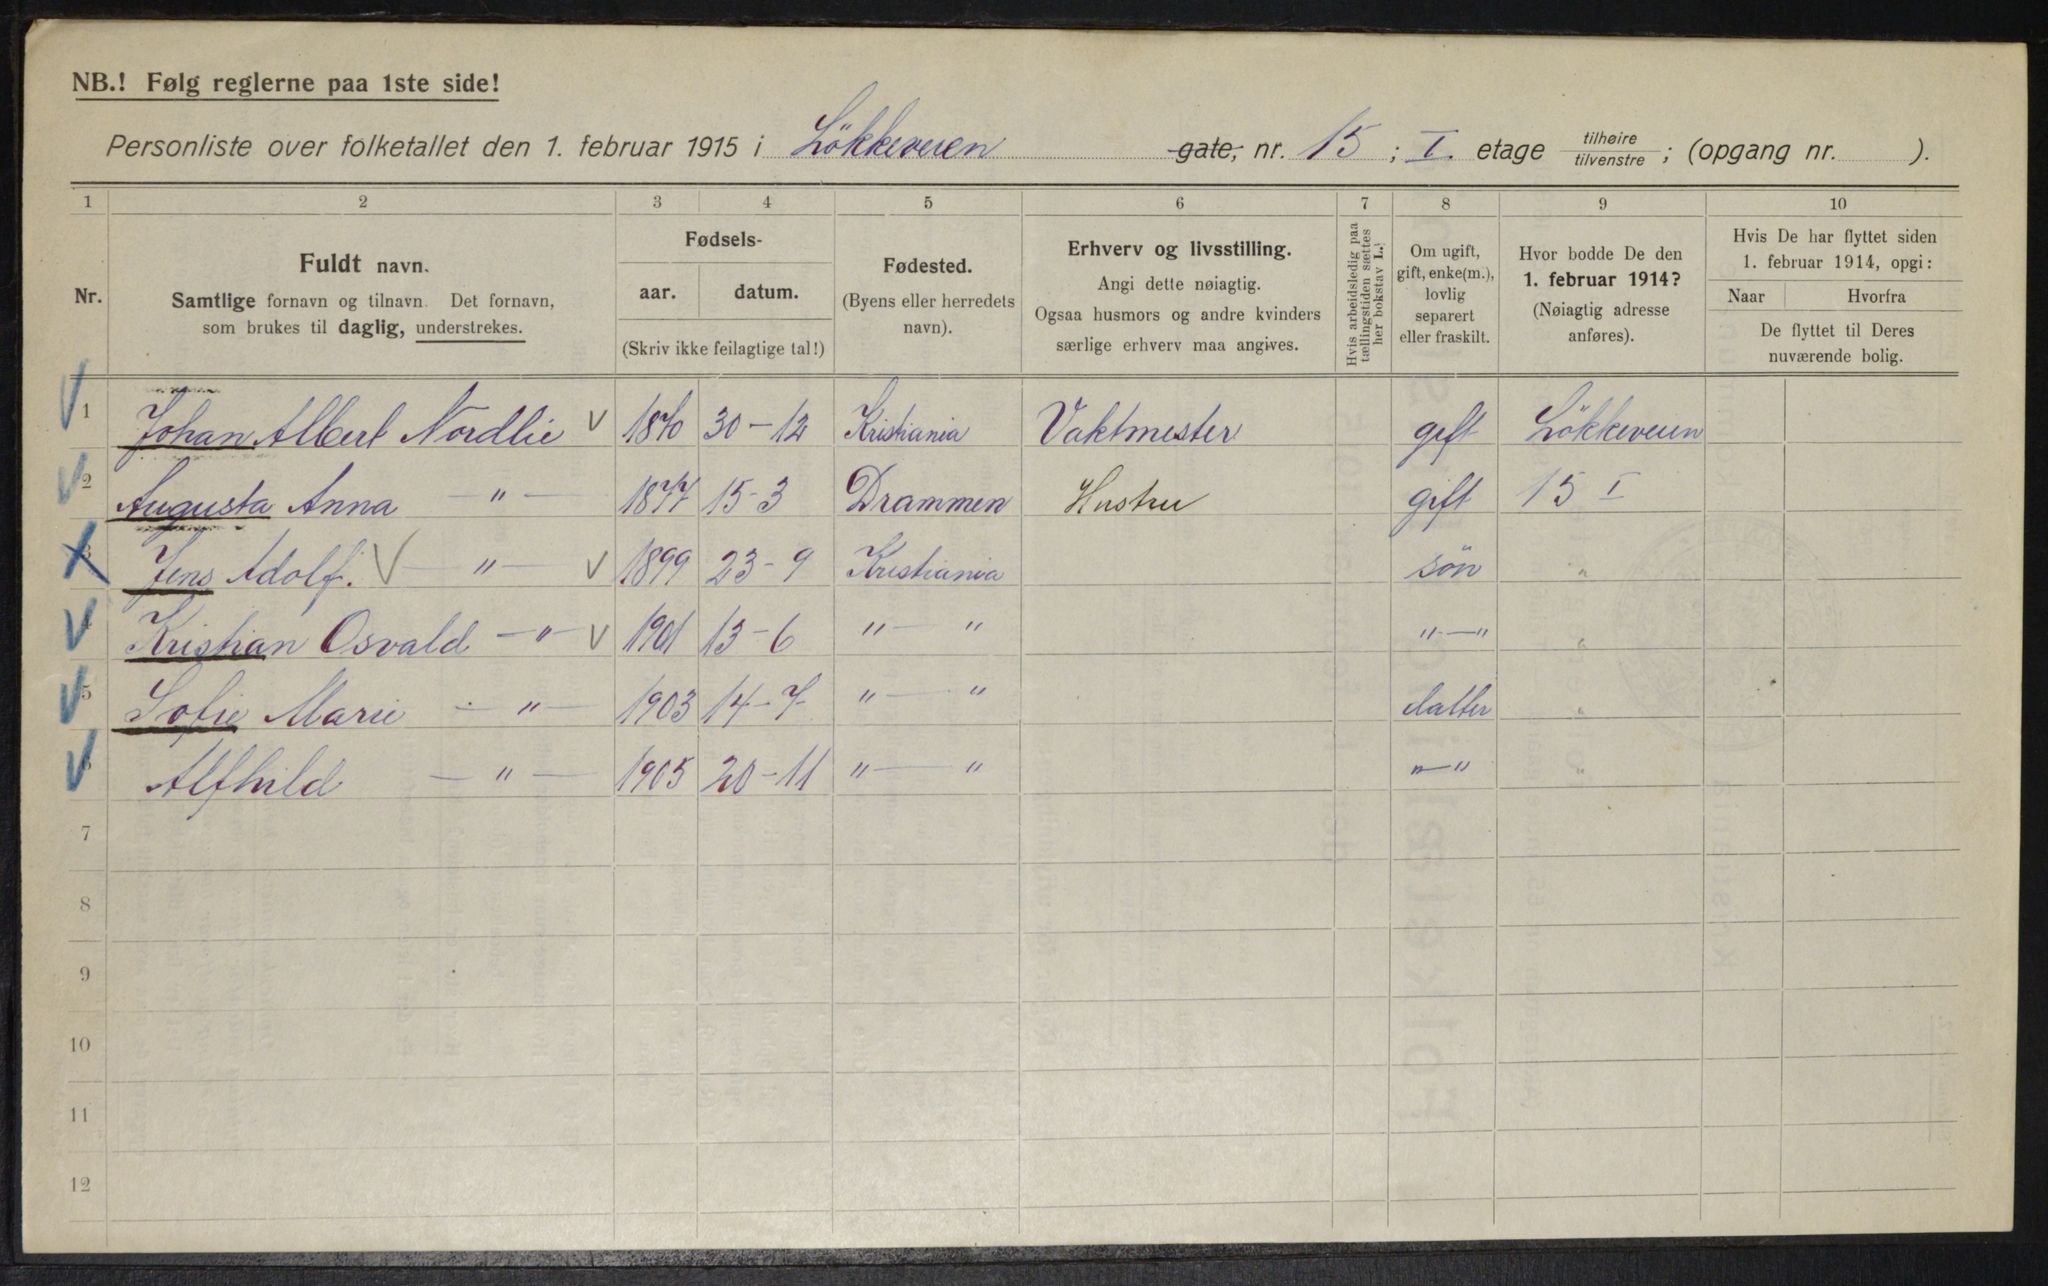 NB.! Følg reglerne paa 1ste side!
Personliste over folketallet den 1. februar 1915 i Lökkeveien gate, nr. 15 ; I. etage tilhøire/tilvenstre ; (opgang nr. ).
1 2 3 4 5 6 7 8 9 10
Nr.
Fuldt navn.
Samtlige fornavn og tilnavn. Det fornavn,
som brukes til daglig, understrekes.
Fødsels-
aar. datum.
(Skriv ikke feilagtige tal!)
Fødested.
(Byens eller herredets
navn).
Erhverv og livsstilling.
Angi dette nøiagtig.
Ogsaa husmors og andre kvinders
særlige erhverv maa angives.
Hvis arbeidsledig paa
tællingstiden sættes
her bokstav L.
Om ugift,
gift, enke(m.),
lovlig
separert
eller fraskilt.
Hvor bodde De den
1. februar 1914?
(Nøiagtig adresse
anføres).
Hvis De har flyttet siden
1. februar 1914, opgi:
Naar Hvorfra
De flyttet til Deres
nuværende bolig.
1 Johan Albert Nordlie 1870 30-12 Kristiania Vaktmester gift Lökkeveien
2 Augusta Anna —"— 1877 15-3 Drammen Hustru gift 15 I
3 Jens Adolf. —"— 1899 23-9 Kristiania sön "
4 Kristian Osvald —"— 1901 13-6 "—" "—" "
5 Sofie Marie —"— 1903 14-7 "—" datter "
6 Alfhild —"— 1905 20-11 "—" "—" "
7
8
9
10
11
12